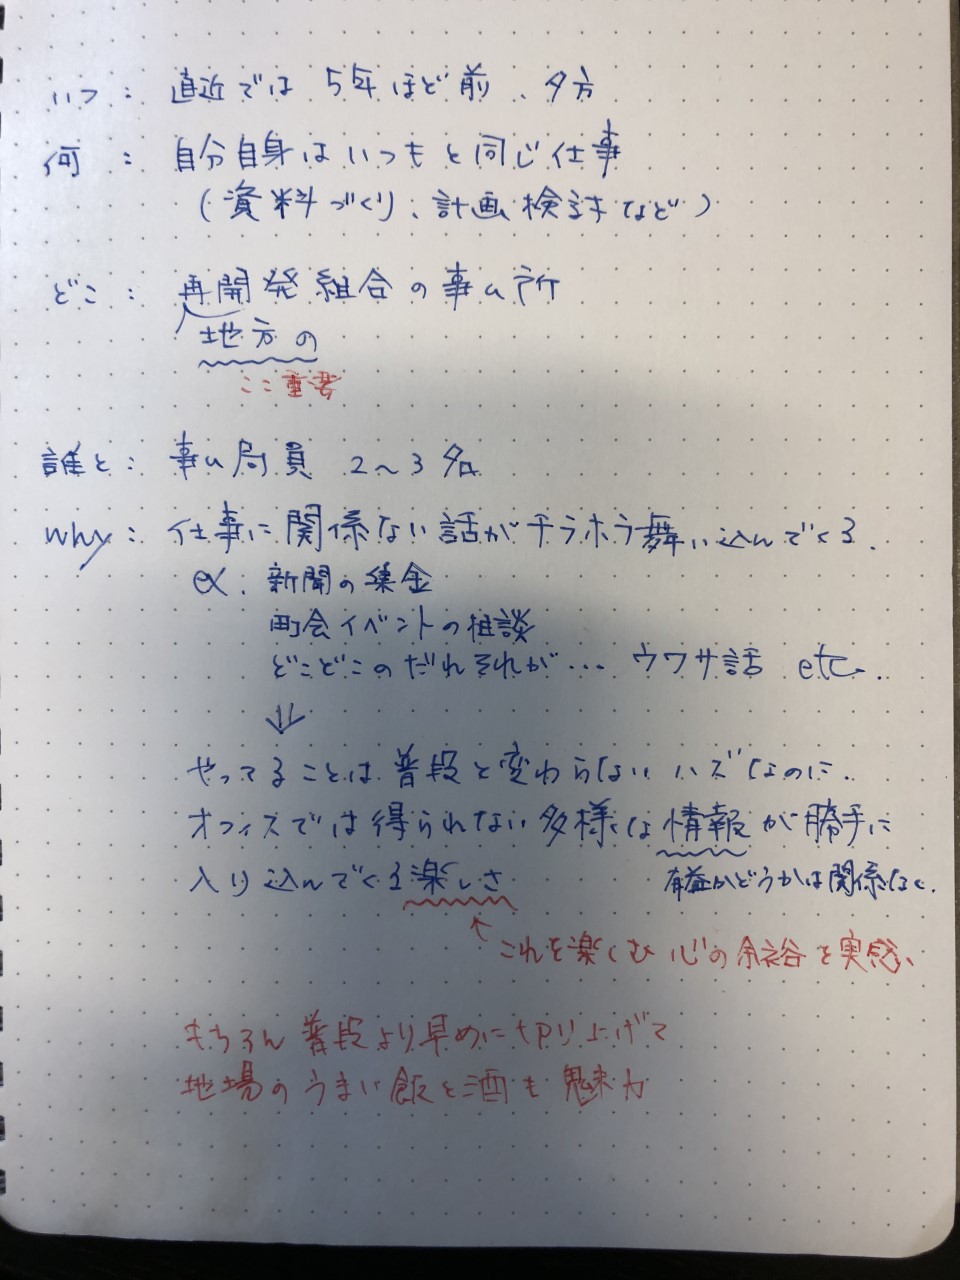 いつ： 直近では 5年ほど前、夕方
何 ： 自分自身はいつもと同じ仕事
（資料づくり、計画検討など）
どこ： 再開発組合の事ム所
地方の
ここ重要
誰と： 事ム局員 2〜3名
why： 仕事に関係ない話がチラホラ舞い込んでくる.
ex. 新聞の集金
町会イベントの相談
どこどこのだれそれが… ウワサ話 etc.
⇓
やってることは普段と変わらないハズなのに、
オフィスでは得られない多様な情報が勝手に
入り込んでくる楽しさ
有益かどうかは関係なく.
↑これを楽しむ心の余裕を実感、
もちろん普段より早めに切り上げて
地場のうまい飯と酒も魅力